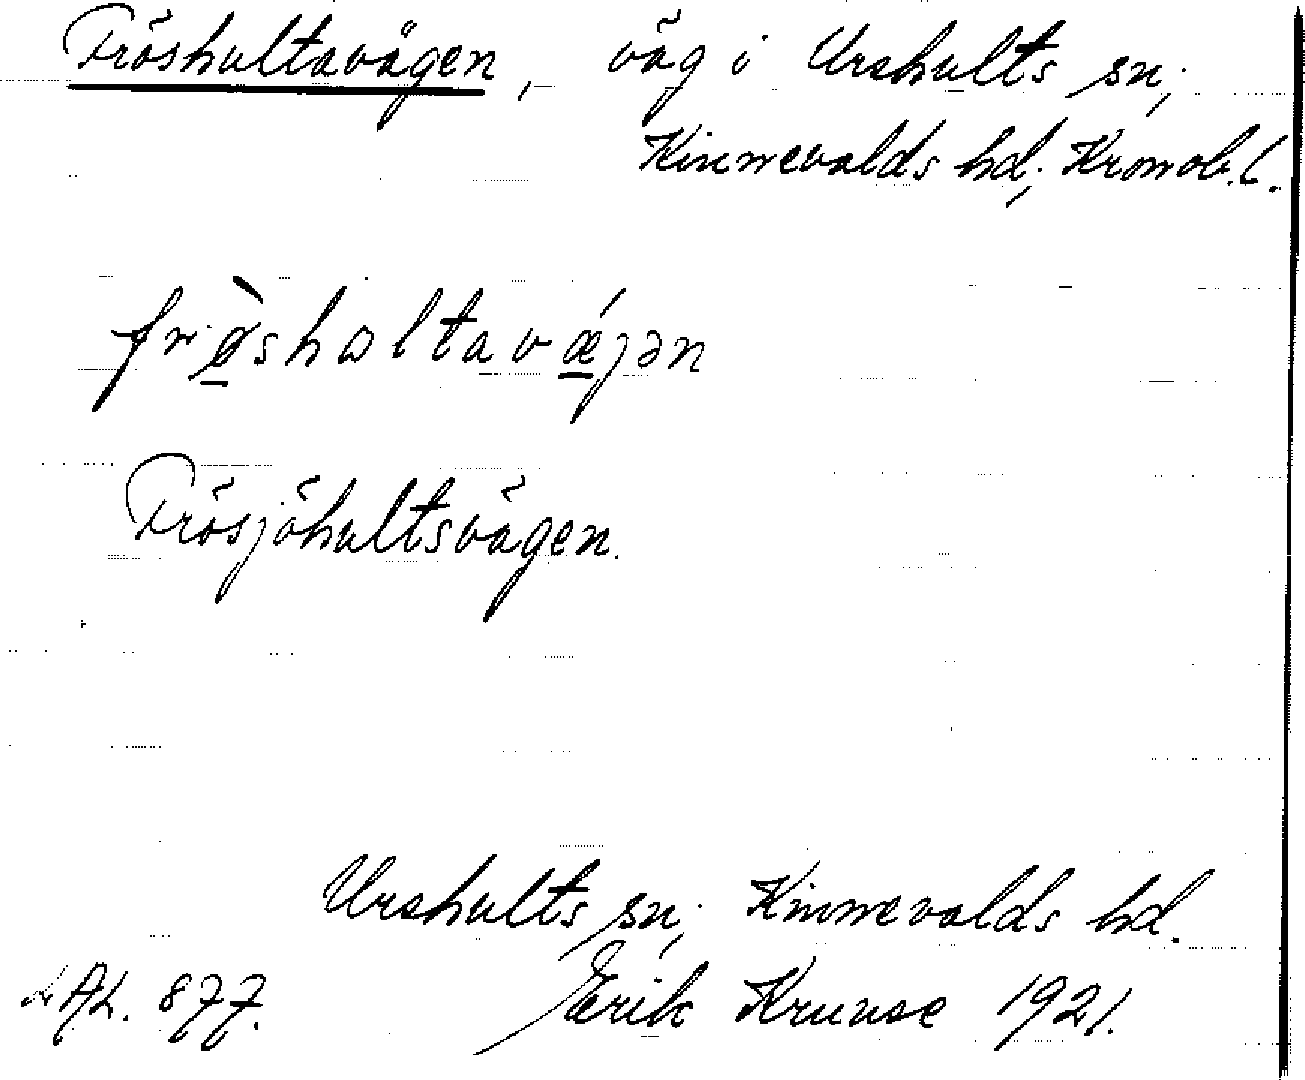 Fröshultavägen, väg i Urshults sn;
Kinnevalds hd; Kronob. l.
frø̀sholtavǽjən
Frösjöhultsvägen.
Urshults sn; Kinnevalds hd.
LAL. 877. Erik Kruuse 1921.